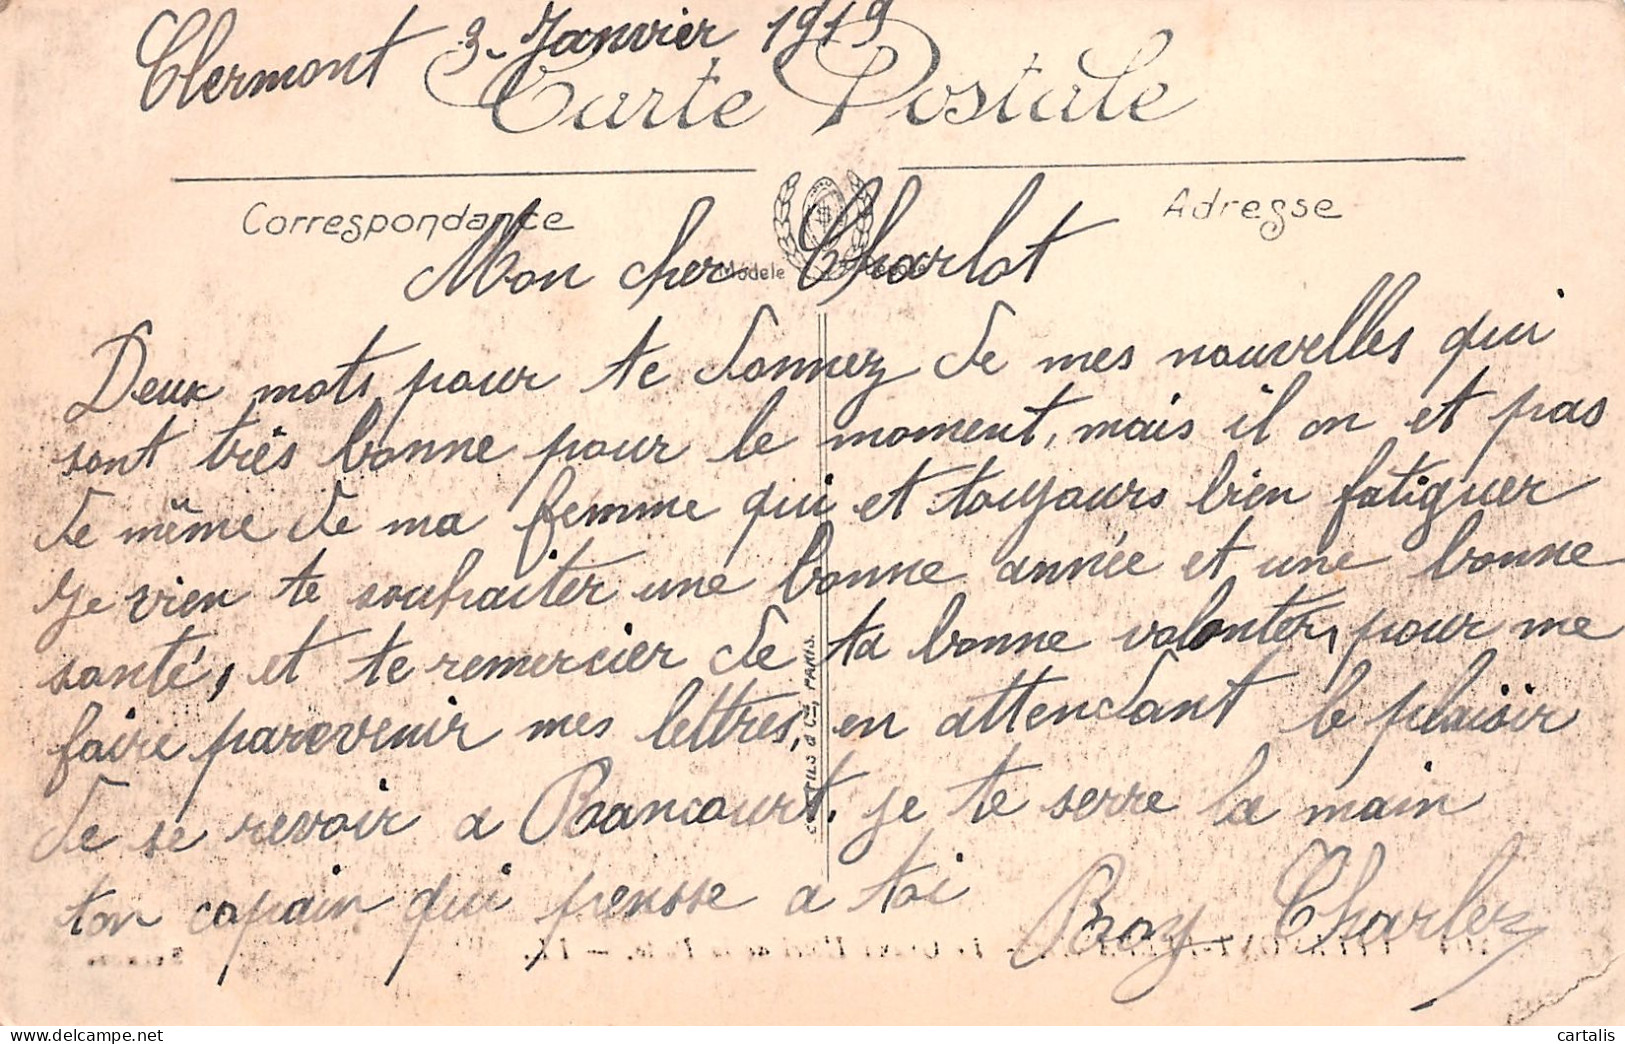 Clermont 3. Janvier 1919
Carte Postale
Correspondance
Adresse
Modèle
Mon cher Charlot
Deux mots pour te donnez de mes nouvelles qui
sont très bonne pour le moment, mais il on et pas
de même de ma femme qui et toujours bien fatiguer
Je vien te souhaiter une bonne année et une bonne
santé, et te remercier de ta bonne volonter, pour me
faire parevenir mes lettres, en attendant le plaisir
de se revoir a Rancourt. je te serre la main
ton copain qui pensse a toi
Roy Charlez
FILS & Cie, PARIS.
cartalis